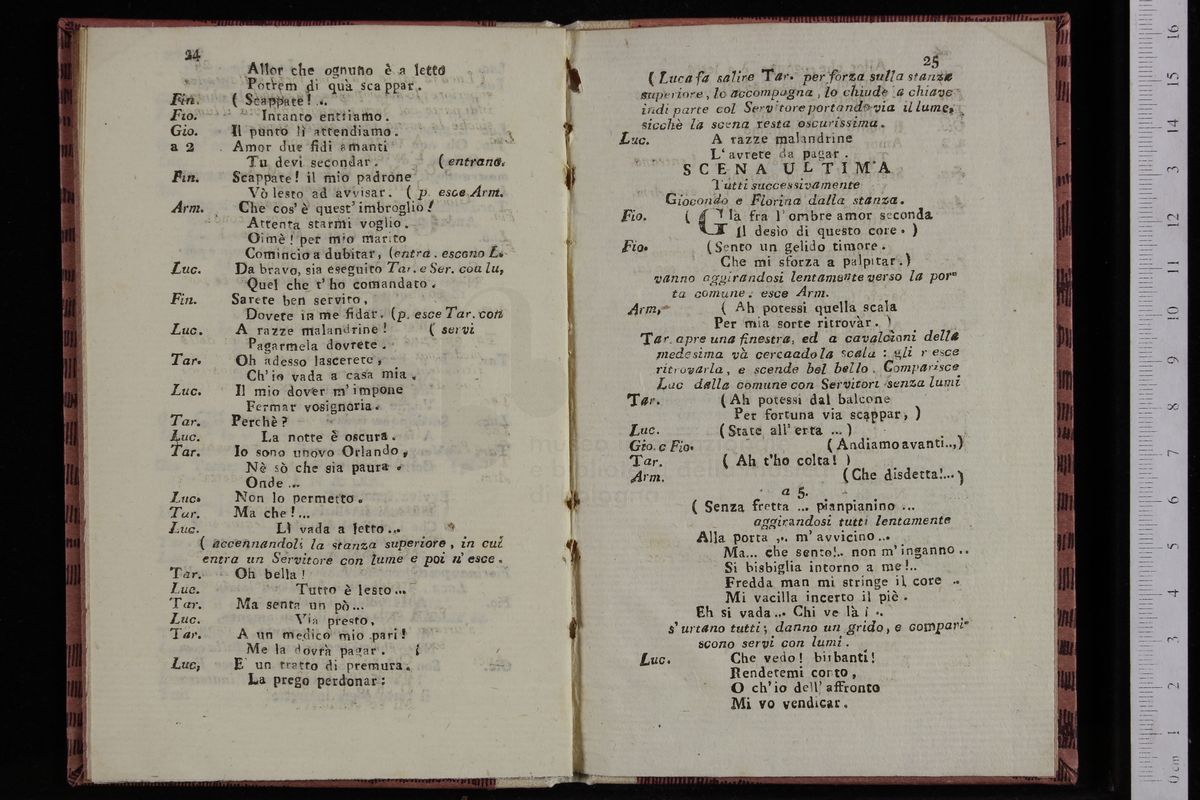 24
Allor che ognuno è a letto
Potrem di quà scappar.
Fin. ( Scappate! ..
Fio. Intanto entriamo.
Gio. Il punto lì attendiamo.
a 2 Amor due fidi amanti
Tu devi secondar. ( entrano.
Fin. Scappate! il mio padrone
Vò lesto ad avvisar. ( p. esce Arm.
Arm. Che cos' è quest' imbroglio!
Attenta starmi voglio.
Oimè! per mio marito
Comincio a dubitar, (entra. escono L.
Luc. Da bravo, sia eseguito Tar. e Ser. con lu,
Quel che t' ho comandato.
Fin. Sarete ben servito,
Dovete in me fidar. (p. esce Tar. con
Luc. A razze malandrine! ( servi
Pagarmela dovrete.
Tar. Oh adesso lascerete,
Ch' io vada a casa mia.
Luc. Il mio dover m' impone
Fermar vosignoria.
Tar. Perchè?
Luc. La notte è oscura.
Tar. Io sono unovo Orlando,
Nè sò che sia paura.
Onde ...
Luc. Non lo permetto.
Tar. Ma che!...
Luc. Lì vada a letto...
( accennandoli la stanza superiore, in cui
entra un Servitore con lume e poi n' esce.
Tar. Oh bella!
Luc. Tutto è lesto...
Tar. Ma senta un pò...
Luc. Via presto,
Tar. A un medico mio pari!
Me la dovrà pagar.
Luc, E' un tratto di premura.
La prego perdonar:
25
( Luca fa salire Tar. per forza sulla stanza
superiore, lo accompagna, lo chiude a chiave
indi parte col Servitore portando via il lume,
sicchè la scena resta oscurissima.
Luc. A razze malandrine
L' avrete da pagar.
SCENA ULTIMA
Tutti successivamente
Giocondo e Florina dalla stanza.
Fio. ( Già fra l' ombre amor seconda
Il desio di questo core. )
Fio. (Sento un gelido timore.
Che mi sforza a palpitar.)
vanno aggirandosi lentamente verso la por-
ta comune. esce Arm.
Arm, ( Ah potessi quella scala
Per mia sorte ritrovar. )
Tar. apre una finestra, ed a cavalcioni della
medesima và cercaadola scala: gli r esce
ritrovarla, e scende bel bello. Comparisce
Luc dalla comune con Servitori senza lumi
Tar. (Ah potessi dal balcone
Per fortuna via scappar, )
Luc. (State all' erta ... )
Gio. e Fio. ( Andiamo avanti..,)
Tar. ( Ah t'ho colta! )
Arm. (Che disdetta!...)
a 5.
( Senza fretta ... pianpianino ...
aggirandosi tutti lentamente
Alla porta ,.. m' avvicino...
Ma... che sento!.. non m' inganno..
Si bisbiglia intorno a me!..
Fredda man mi stringe il core ..
Mi vacilla incerto il piè.
Eh si vada... Chi ve là! ..
s' urtano tutti; danno un grido, e compari-
scono servi con lumi.
Luc. Che vedo! birbanti!
Rendetemi corto,
O ch' io dell' affronto
Mi vo vendicar.